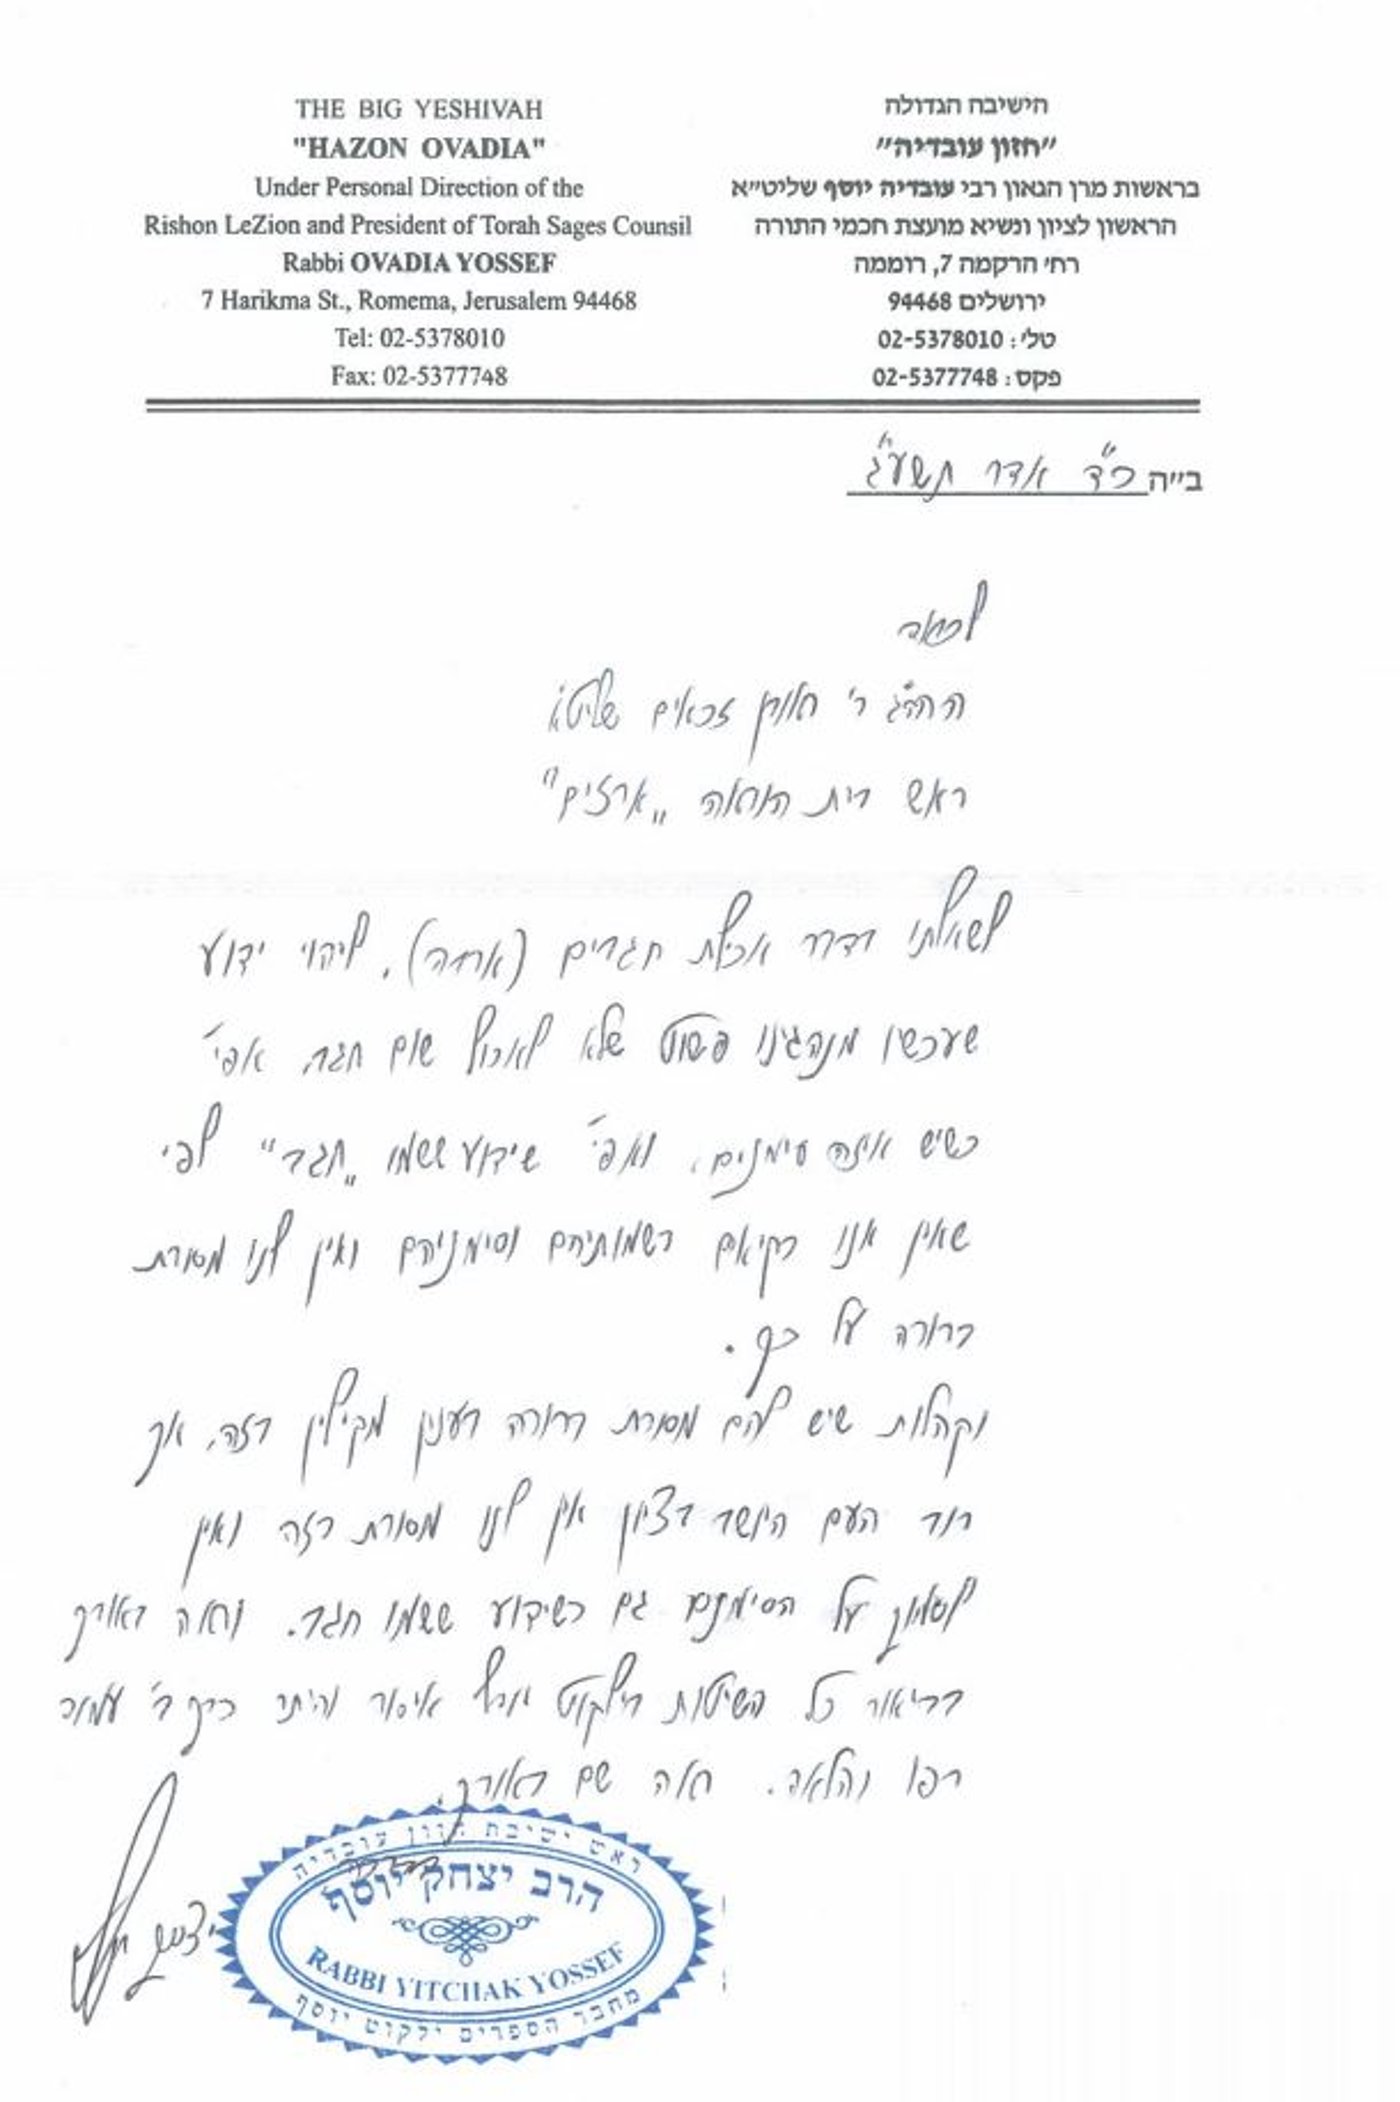 THE BIG YESHIVAH
"HAZON OVADIA"
Under Personal Direction of the
Rishon LeZion and President of Torah Sages Counsil
Rabbi OVADIA YOSSEF
7 Harikma St., Romema, Jerusalem 94468
Tel: 02-5378010
Fax: 02-5377748
הישיבה הגדולה
"חזון עובדיה"
בראשות מרן הגאון רבי עובדיה יוסף שליט"א
הראשון לציון ונשיא מועצת חכמי התורה
רח' הרקמה 7, רוממה
ירושלים 94468
טל': 02-5378010
פקס: 02-5377748
ב"ה כ"ד אדר תשע"ג
לכבוד
הרה"ג ר' אמרם שליט"א
ראש בית הוראה "ארזים"
לשאלתו בדבר אכילת חגבים (ארבה), ליהוי ידוע
שעכשיו מנהגינו פשוט שלא לאכול שום חגב, אפי'
כשיש איזה סימנים, ואפי' שידוע ששמו "חגב" לפי
שאין אנו בקיאים בשמותיהם וסימניהם ואין לנו מסורת
ברורה על כך.
וקהלות שיש להם מסורת ברורה בענין מקילין בזה, אך
רוב העם היושב בציון אין לנו מסורת בזה ואין
לסמוך על הסימנים גם כשידוע ששמו חגב. וראה באורך
בביאור כל השיטות בילקוט יוסף איסור והיתר כרך ב' עמוד
רפו והלאה. ראה שם באורך.
בברכה
יצחק יוסף
ראש ישיבת חזון עובדיה
הרב יצחק יוסף
RABBI YITCHAK YOSSEF
מחבר הספרים ילקוט יוסף